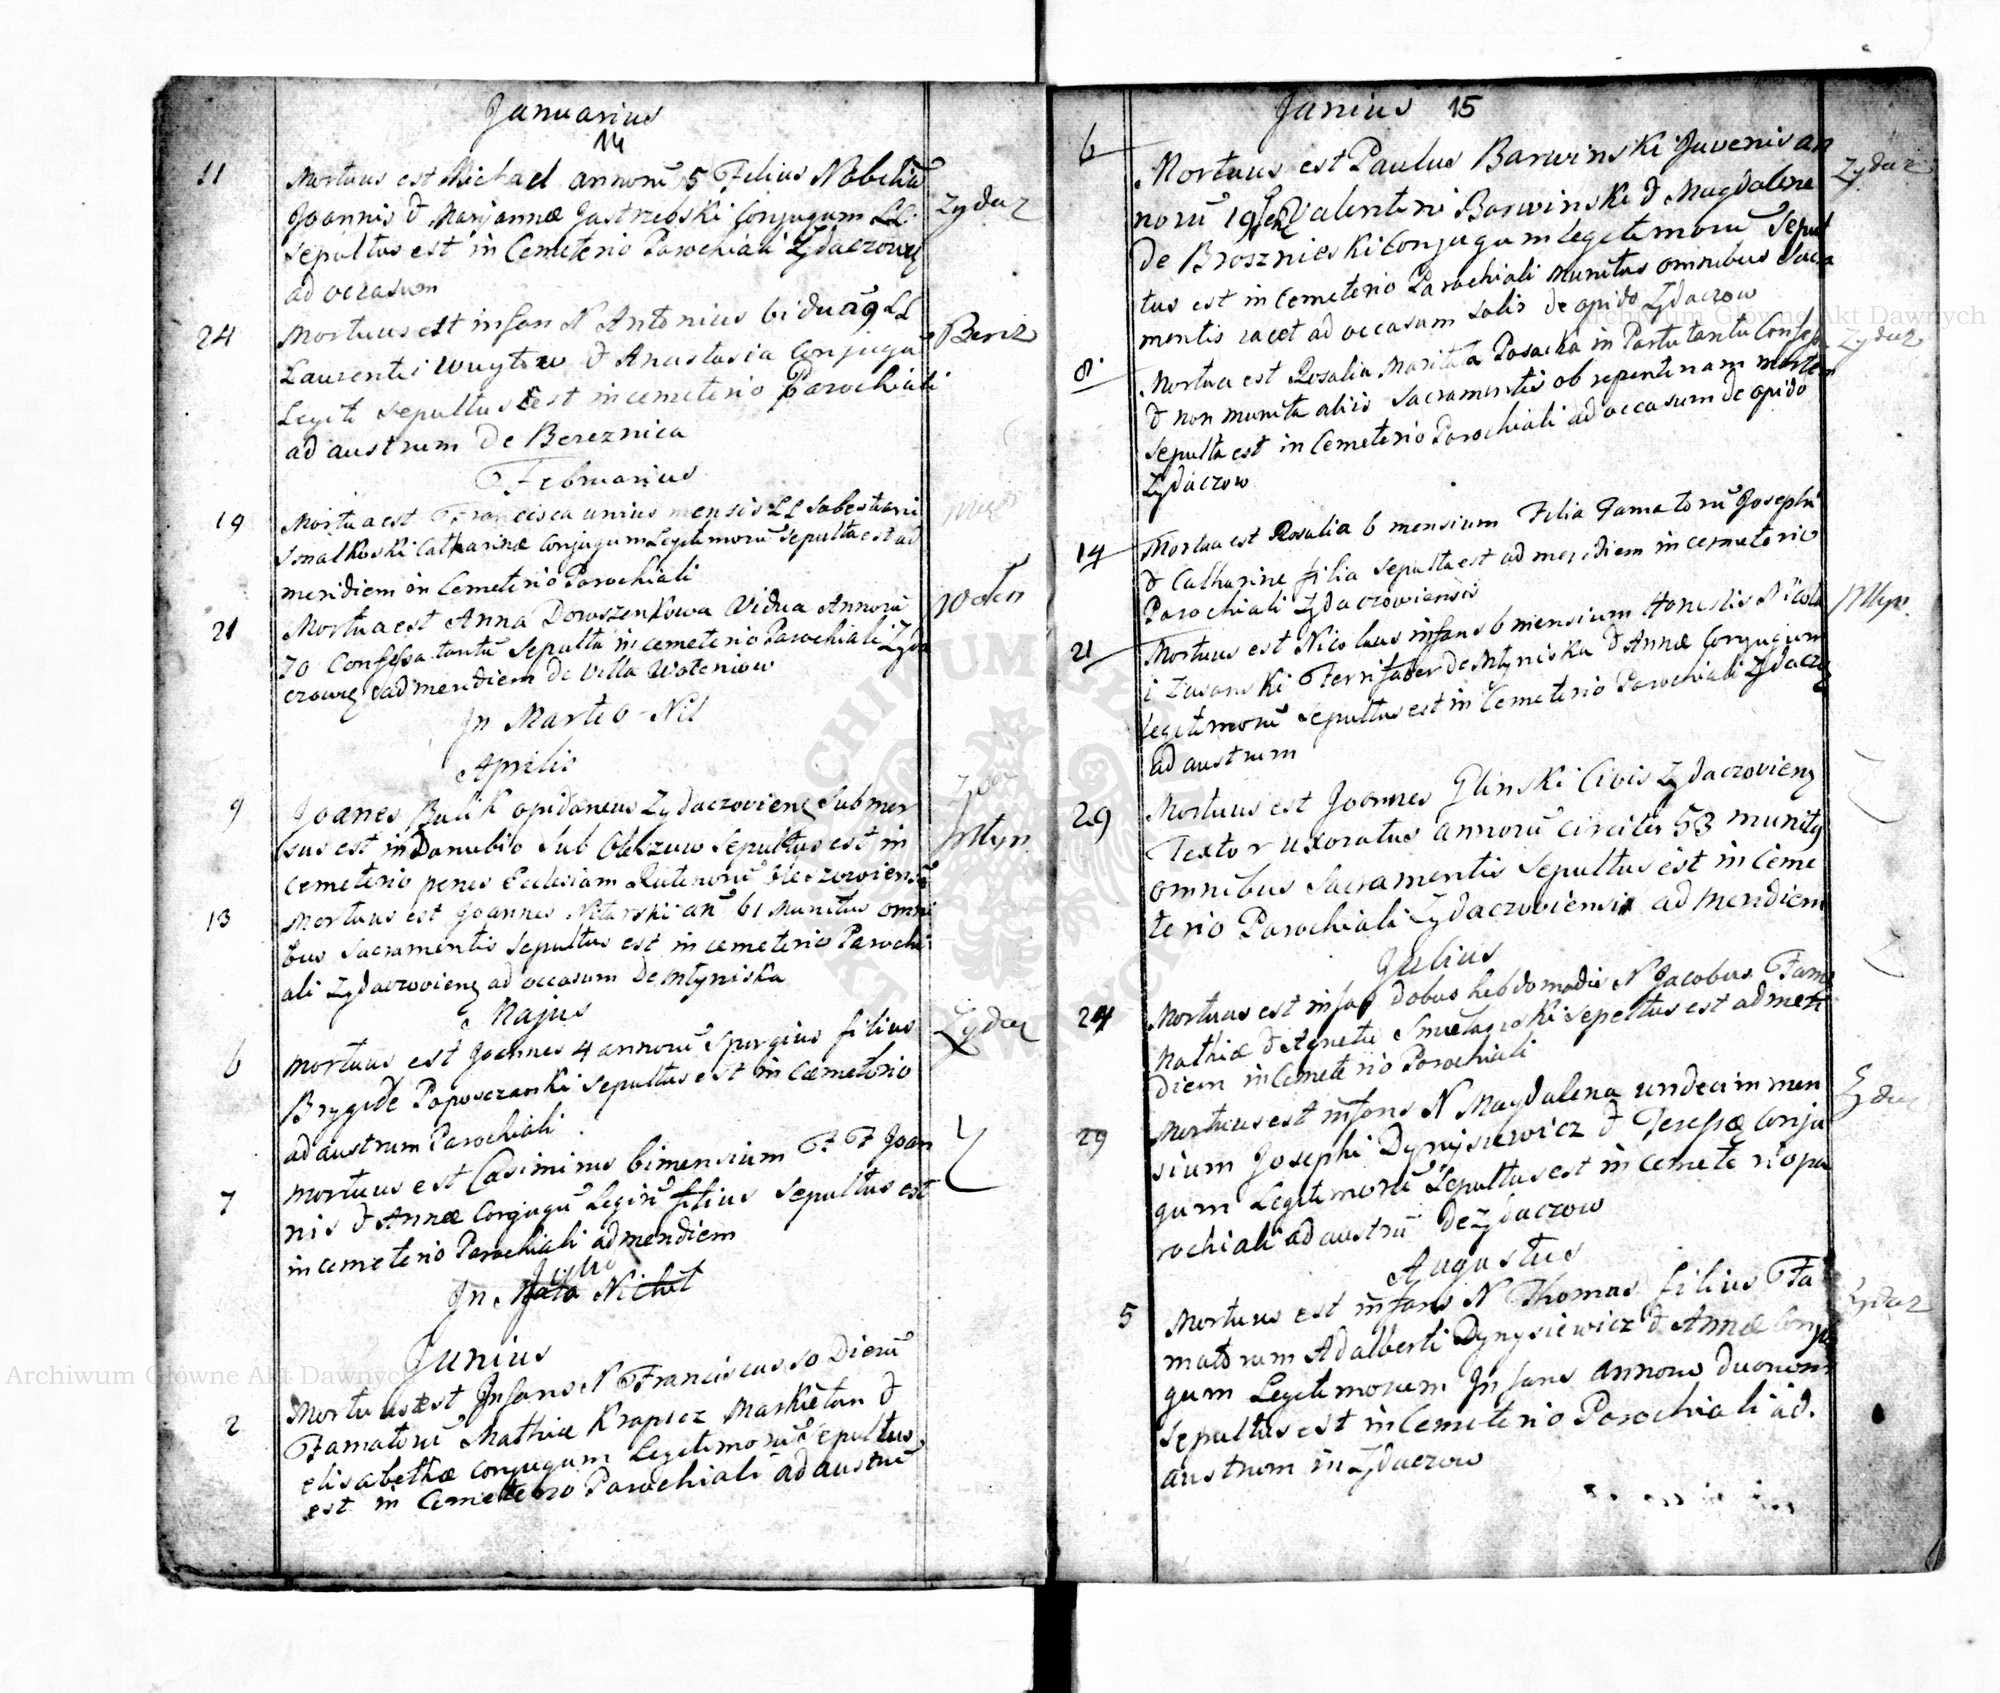 Januarius
14
11 Mortuus est Michael annorũ 5 Filius Nobiliũ
Joannis & Maryannæ Jastrzebski Conjugum LL.
Sepultus est in Cemeterio Parochiali Zydaczoviẽ
ad occasum
Zydacz
24 Mortuus est infan N Antonius biduaꝰ LL
Laurentii Wuytow & Anastasia Conjugũ
Legit Sepultus est in cemeterio Parochiali
ad austrum De Bereznica
Berez
Februarius
19 Mortua est Francisca unius mensis LL Sabestiani
Smalkoski Catharinæ Conjugum Legitimorũ Sepulta est ad
meridiem in Cemeterio Parochiali
21 Mortua est Anna Doroszenkowa Vidua Annorũ
70 Confessa tantũ Sepulta in cemeterio Parochiali Zyda
czoviẽ ad meridiem de Villa Woleniow
Wolen
In Martio - Nil
Aprilis
9 Joanes Bulik opidaneus Zydaczovienẽ Submer
sus est in Danubio Sub Sepultus est in
Cemeterio penes Ecclesiam Rutenorũ
13 Mortuus est Joannes an̄ 61 Munitus omni
bus Sacramentis Sepultus est in cemeterio Parochi
ali Zydaczovienẽ ad occasum De Mlyniska
Mlyn
Majus
6 Mortuus est Joannes 4 annorũ Spurgius filius
Brygide Poposczanki Sepultus est in Cæmeterio
ad austrum Parochiali
Zydacz
7 Mortuus est Casimirus bimensium F. F Joan
nis & Annæ Conjugũ Legitĩ filius Sepultus est
in cemeterio Parochiali ad meridiem
Julio
In Majo Nihil
Junius
2 Mortuus est Infans N Franciscus 10 Dierũ
Famatorũ Mathiæ Krapicz Markietan &
elisabethæ conjugum Legitimorũ Sepultus
est in Cemeterio Parochiali ad austrũ
Junius 15
6 Mortuus est Paulus Barwinski Juvenis an
norũ 19 Valentini Barwinski & Magdalene
de Brosznieski Conjugum legitimorũ Sepul
tus est in Cemeterio Parochiali munitus omnibus Sacra
mentis iacet ad occasum Solis de opido Zydaczow
Zydacz
8 Mortua est Rosalia Maritata Posacka in Partu tantũ Confess
& non munita aliis Sacramentis ob repentinam mortem
Sepulta est in Cemeterio Parochiali ad occasum de opido
Zydaczow
Zydacz
14 Mortua est Rosalia 6 mensium Filia Famatorũ Josephi
& Catharine filia Sepulta est ad meridiem in cemeterio
Parochiali Zydaczowiensis
21 Mortuus est Nicolaus infans 6 mensium Honestis Nicola
i Zusanski Ferrifaber de Mlyniska & Annæ Conjugum
legitimorũ Sepultus est in Cemeterio Parochiali Zydacz
ad austrum
Mlyn
29 Mortuus est Joannes Glinski Civis Zydaczovienẽ
Textor uxoratus annorũ circiter 53 munitꝰ
omnibus Sacramentis Sepultus est in Ceme
terio Parochiali Zydaczoviensis ad meridiem
Julius
24 Mortuus est infas dobus hebdomadis N Jacobus Fama
Mathiæ & Agnetis Smietanski Sepeltus est ad meri
diem in Cemeterio Parochiali
29 Mortuus est infans N Magdalena undecim men
sium Josephi Dynysiewicz & Teressæ Conju
gum Legitimorũ Sepultus est in cemeterio pa
rochiali ad austrũ de Zydaczow
Zydacz
Augustus
5 Mortuus est infans N Thomas filius Fa
matorum Adalberti Dynysiewicz & Annæ Conju
gum Legitimorum Infans annorũ duorum
Sepultus est in Cemeterio Parochiali ad.
austrum in Zydaczow
Zydacz
Archiwum Główne Akt Dawnych
Archiwum Główne Akt Dawnych